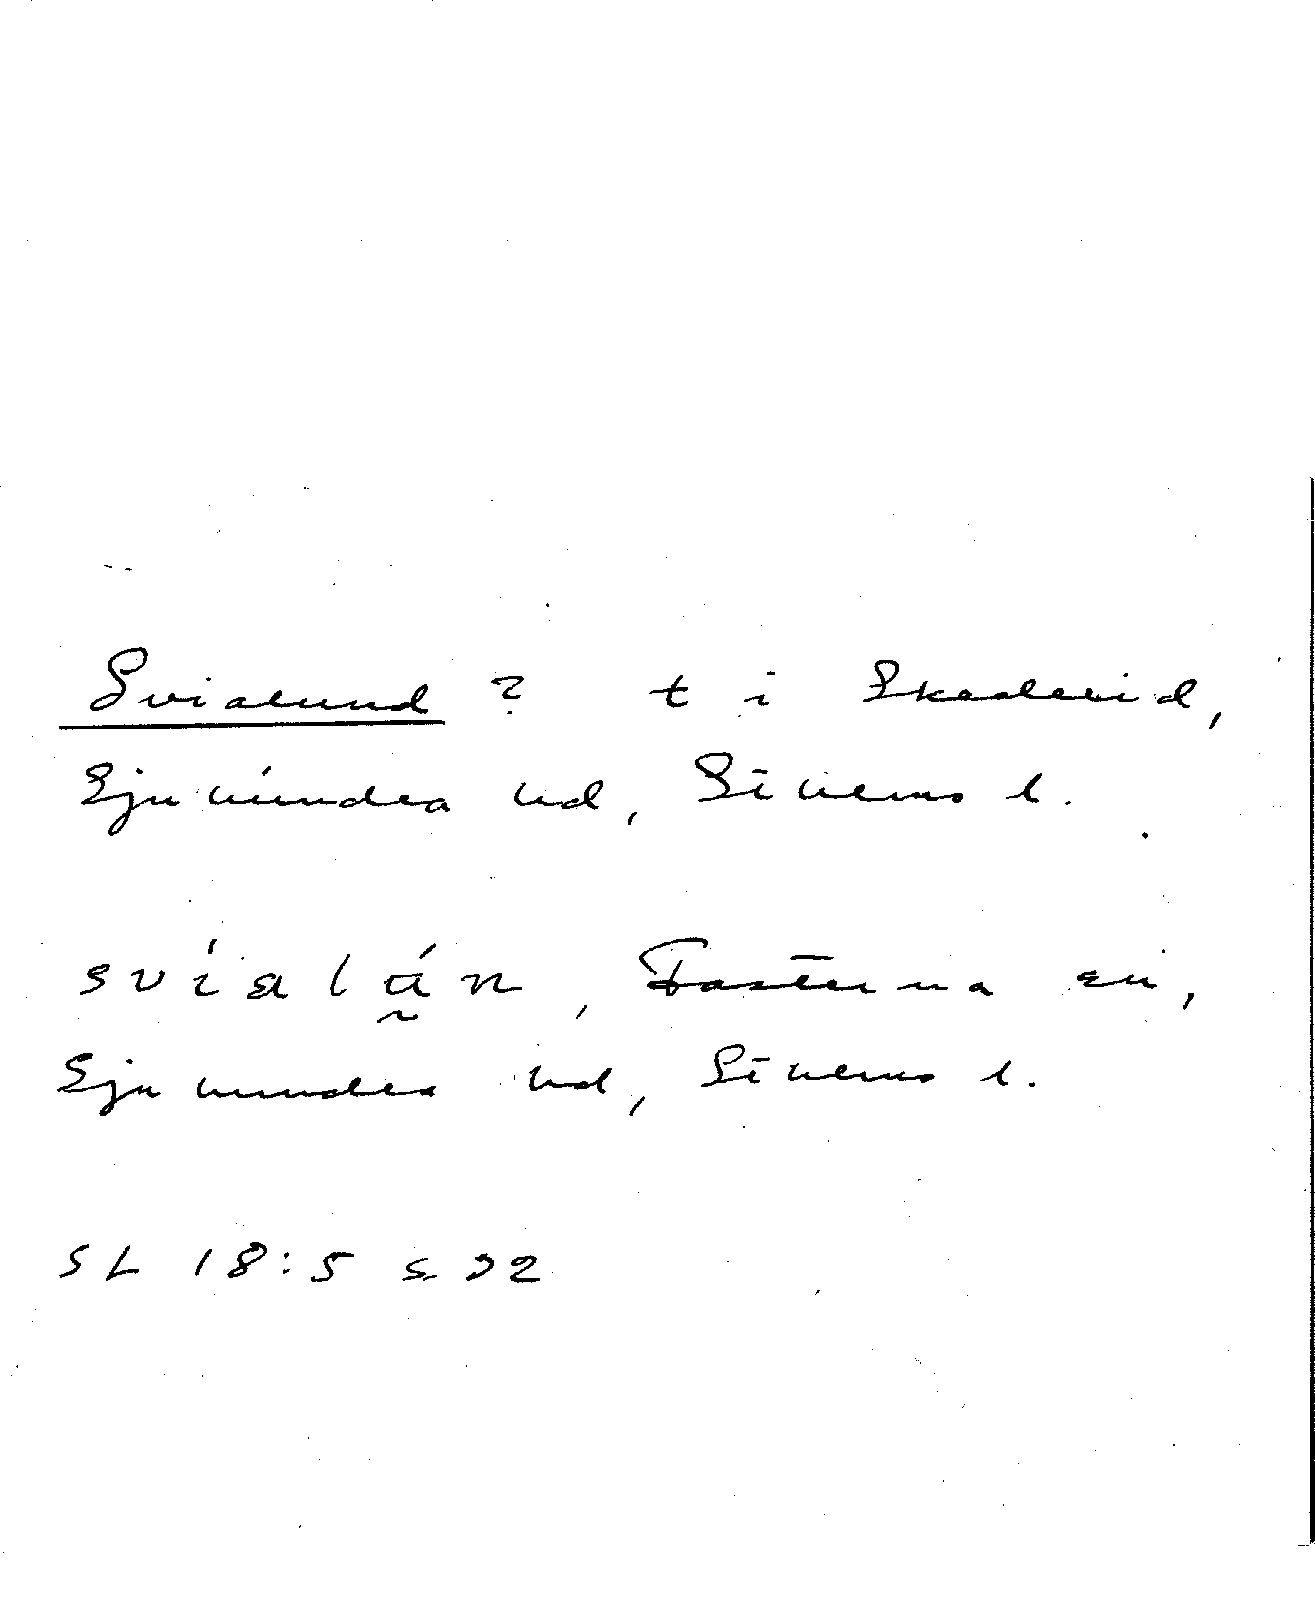 Svialund ? t i Skederid,
Sjuhundra hd, Sthlms l.
svíalán, Fasterna sn,
Sjuhundra hd, Sthlms l.
SL 18:5 s. 72